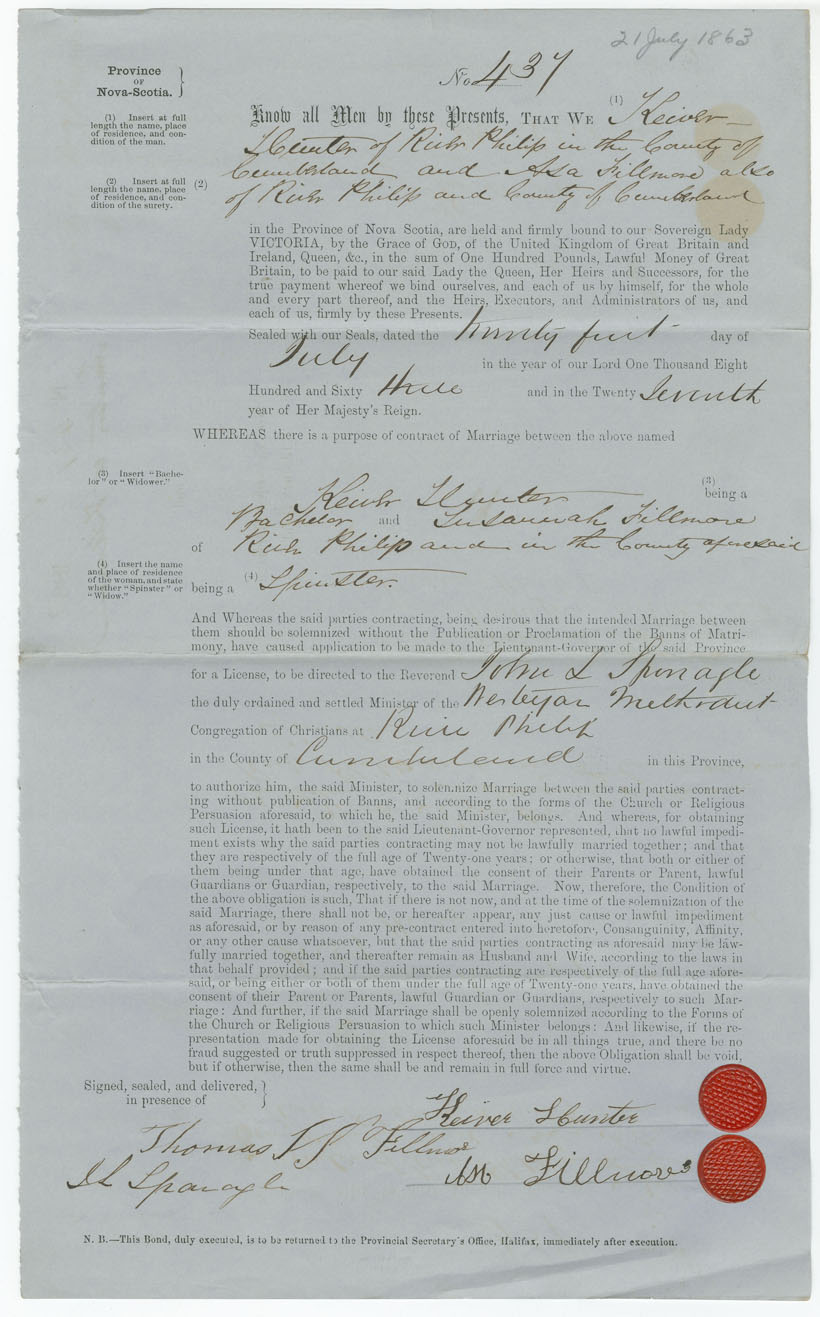 21 July 1863
Province
OF
Nova-Scotia.
No. 437
(1) Insert at full
length the name, place
of residence, and con-
dition of the man.
Know all Men by these Presents, THAT WE (1) Keiver
Hunter of River Philip in the County of
Cumberland and Asa Fillmore also
(2) Insert at full
length the name, place
of residence, and con-
dition of the surety.
(2) of River Philip and County of Cumberland
in the Province of Nova Scotia, are held and firmly bound to our Sovereign Lady
VICTORIA, by the Grace of GOD, of the United Kingdom of Great Britain and
Ireland, Queen, &c., in the sum of One Hundred Pounds, Lawful Money of Great
Britain, to be paid to our said Lady the Queen, Her Heirs and Successors, for the
true payment whereof we bind ourselves, and each of us by himself, for the whole
and every part thereof, and the Heirs, Executors, and Administrators of us, and
each of us, firmly by these Presents.
Sealed with our Seals, dated the twenty first day of
July in the year of our Lord One Thousand Eight
Hundred and Sixty three and in the Twenty Seventh
year of Her Majesty's Reign.
WHEREAS there is a purpose of contract of Marriage between the above named
(3) Insert "Bache-
lor" or "Widower."
Keiver Hunter (3) being a
Bachelor and Susannah Fillmore
of River Philip and in the County aforesaid
(4) Insert the name
and place of residence
of the woman, and state
whether "Spinster" or
"Widow."
being a (4) Spinster.
And Whereas the said parties contracting, being desirous that the intended Marriage between
them should be solemnized without the Publication or Proclamation of the Banns of Matri-
mony, have caused application to be made to the Lieutenant-Governor of the said Province
for a License, to be directed to the Reverend John L Sponagle
the duly ordained and settled Minister of the Wesleyan Methodist
Congregation of Christians at River Philip
in the County of Cumberland in this Province,
to authorize him, the said Minister, to solemnize Marriage between the said parties contract-
ing without publication of Banns, and according to the forms of the Church or Religious
Persuasion aforesaid, to which he, the said Minister, belongs. And whereas, for obtaining
such License, it hath been to the said Lieutenant-Governor represented, that no lawful impedi-
ment exists why the said parties contracting may not be lawfully married together; and that
they are respectively of the full age of Twenty-one years; or otherwise, that both or either of
them being under that age, have obtained the consent of their Parents or Parent, lawful
Guardians or Guardian, respectively, to the said Marriage. Now, therefore, the Condition of
the above obligation is such, That if there is not now, and at the time of the solemnization of the
said Marriage, there shall not be, or hereafter appear, any just cause or lawful impediment
as aforesaid, or by reason of any pre-contract entered into heretofore, Consanguinity, Affinity,
or any other cause whatsoever, but that the said parties contracting as aforesaid may be law-
fully married together, and thereafter remain as Husband and Wife, according to the laws in
that behalf provided; and if the said parties contracting are respectively of the full age afore-
said, or being either or both of them under the full age of Twenty-one years, have obtained the
consent of their Parent or Parents, lawful Guardian or Guardians, respectively to such Mar-
riage: And further, if the said Marriage shall be openly solemnized according to the Forms of
the Church or Religious Persuasion to which such Minister belongs: And likewise, if the re-
presentation made for obtaining the License aforesaid be in all things true, and there be no
fraud suggested or truth suppressed in respect thereof, then the above Obligation shall be void,
but if otherwise, then the same shall be and remain in full force and virtue.
Signed, sealed, and delivered,
in presence of
Keiver Hunter
Thomas Fillmore
Asa Fillmore
J L Sponagle
N. B.—This Bond, duly executed, is to be returned to the Provincial Secretary's Office, Halifax, immediately after execution.